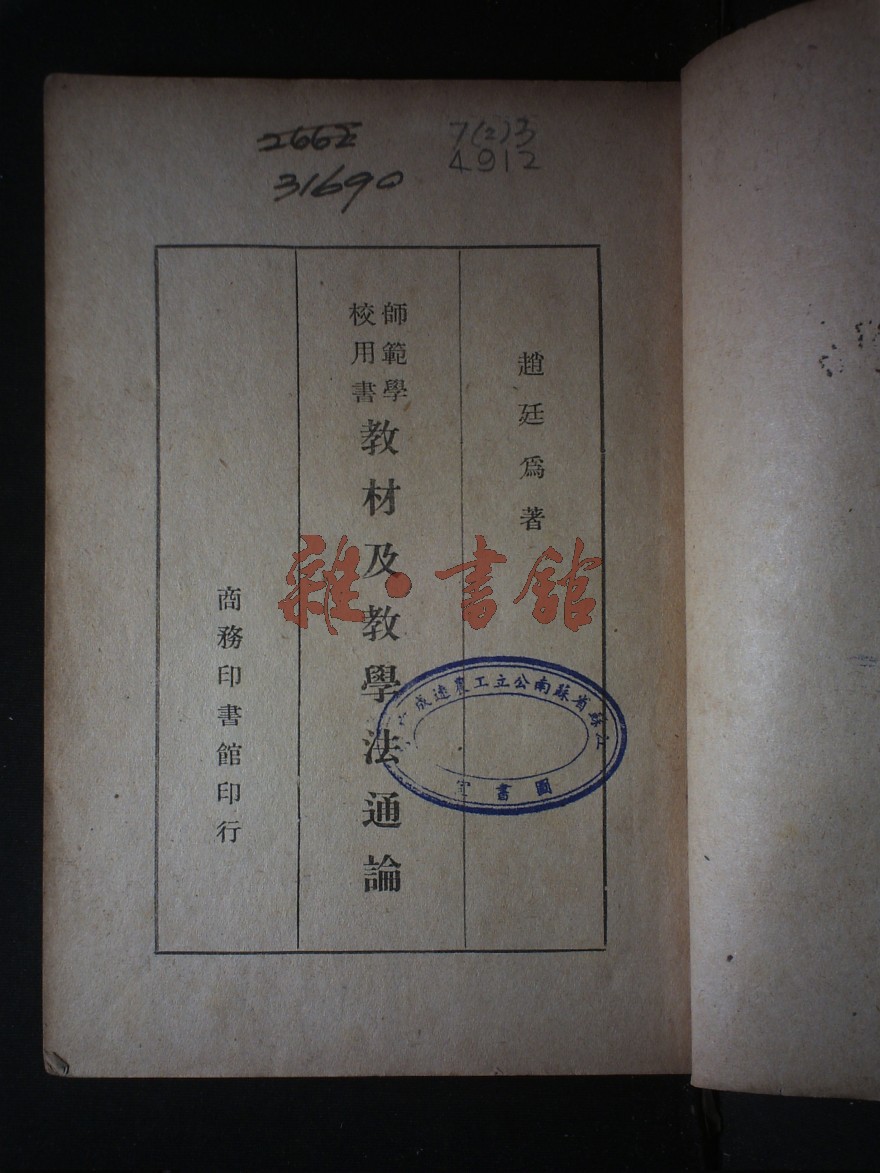 2662
31690
7(2)3
4912
趙廷爲著
師範學
校用書
教材及教學法通論
商務印書館印行
雜·書館
江蘇省蘇南公立工農速成
圖書室